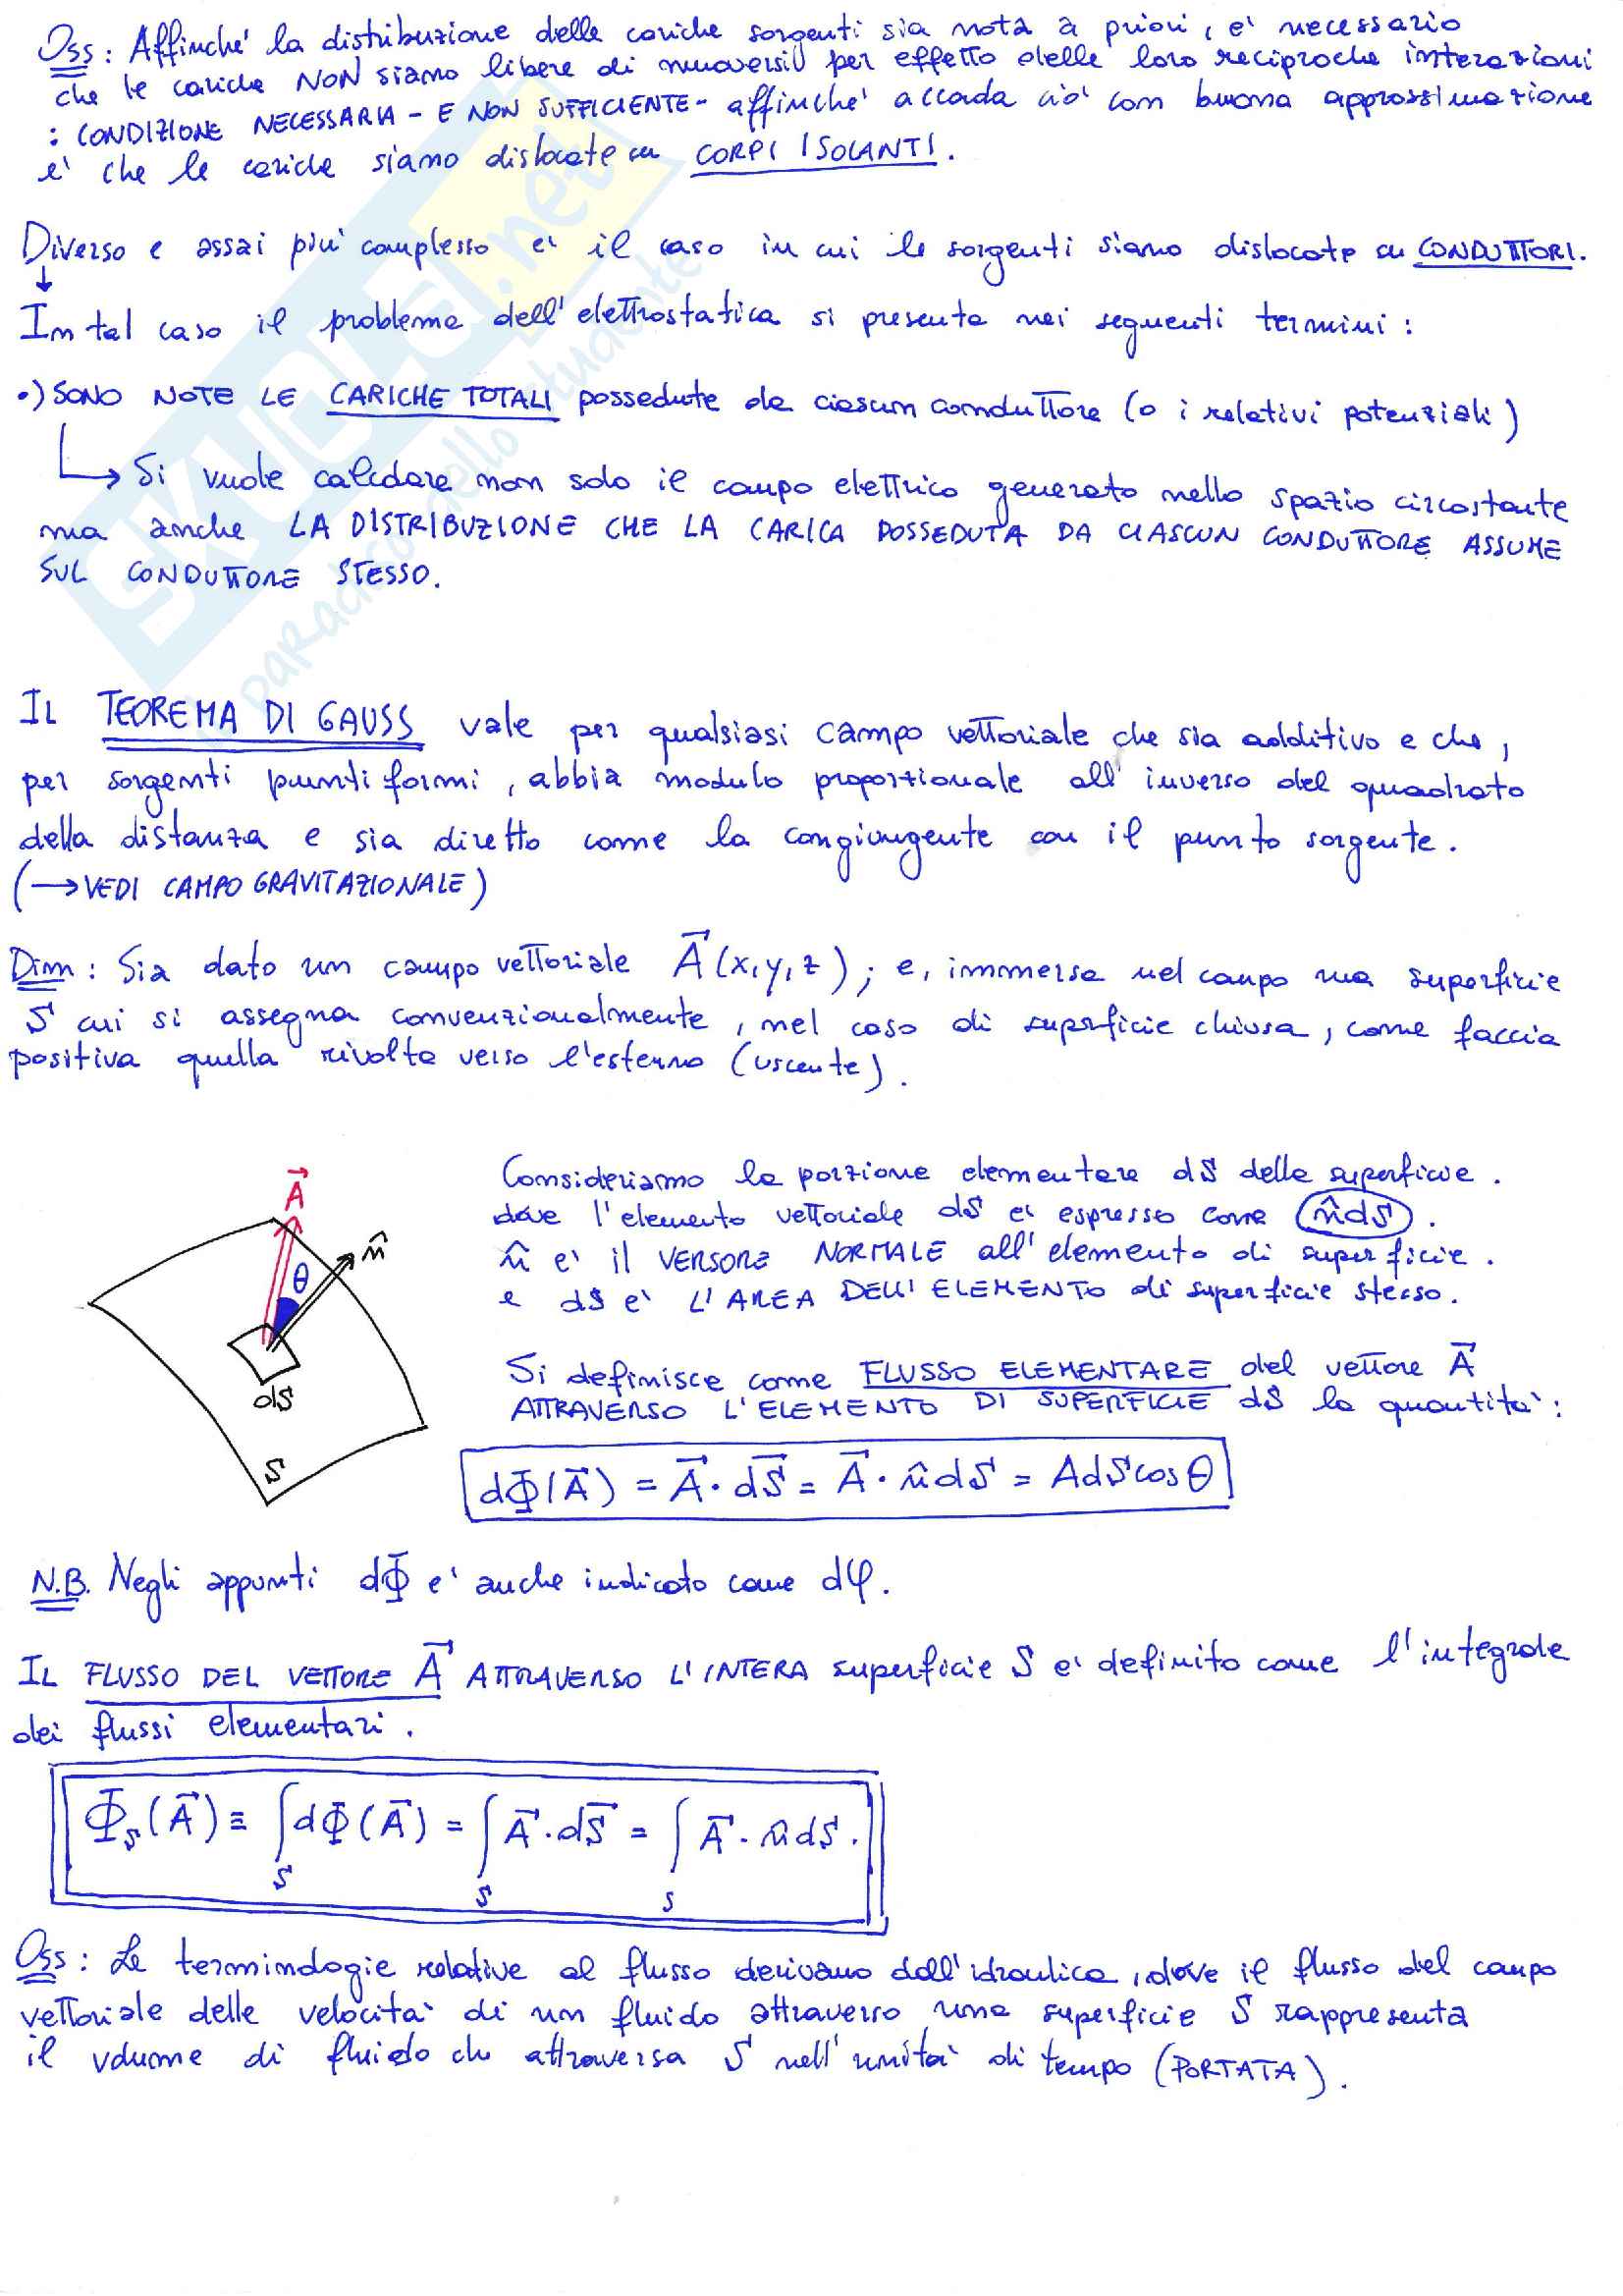 Oss: Affinché la distribuzione delle cariche sorgenti sia nota a priori, è necessario
che le cariche NON siano libere di muoversi per effetto delle loro reciproche interazioni
: CONDIZIONE NECESSARIA - E NON SUFFICIENTE - affinché accada ciò con buona approssimazione
è che le cariche siano dislocate su CORPI ISOLANTI.
Diverso e assai più complesso è il caso in cui le sorgenti siano dislocate su CONDUTTORI.
↓
In tal caso il problema dell'elettrostatica si presenta nei seguenti termini:
•) SONO NOTE LE CARICHE TOTALI possedute da ciascun conduttore (o i relativi potenziali)
→ Si vuole calcolare non solo il campo elettrico generato nello spazio circostante
ma anche LA DISTRIBUZIONE CHE LA CARICA POSSEDUTA DA CIASCUN CONDUTTORE ASSUME
SUL CONDUTTORE STESSO.
SKUOLA.net
il paradiso dello studente
IL TEOREMA DI GAUSS vale per qualsiasi campo vettoriale che sia additivo e che,
per sorgenti puntiformi, abbia modulo proporzionale all'inverso del quadrato
della distanza e sia diretto come la congiungente con il punto sorgente.
(→ VEDI CAMPO GRAVITAZIONALE)
Dim: Sia dato un campo vettoriale A⃗(x,y,z); e, immersa nel campo una superficie
S cui si assegna convenzionalmente, nel caso di superficie chiusa, come faccia
positiva quella rivolta verso l'esterno (uscente).
A⃗
n̂
θ
dS
S
Consideriamo la porzione elementare dS della superficie.
dove l'elemento vettoriale dS è espresso come n̂dS.
n̂ è il VERSORE NORMALE all'elemento di superficie.
e dS è L'AREA DELL'ELEMENTO di superficie stesso.
Si definisce come FLUSSO ELEMENTARE del vettore A⃗
ATTRAVERSO L'ELEMENTO DI SUPERFICIE dS la quantità:
dΦ(A⃗) = A⃗·dS⃗ = A⃗·n̂dS = AdScosθ
N.B. Negli appunti dΦ è anche indicato come dφ.
IL FLUSSO DEL VETTORE A⃗ ATTRAVERSO L'INTERA superficie S è definito come l'integrale
dei flussi elementari.
Φ_S(A⃗) ≡ ∫_S dΦ(A⃗) = ∫_S A⃗·dS⃗ = ∫_S A⃗·n̂dS.
Oss: Le terminologie relative al flusso derivano dall'idraulica, dove il flusso del campo
vettoriale delle velocità di un fluido attraverso una superficie S rappresenta
il volume di fluido che attraversa S nell'unità di tempo (PORTATA).